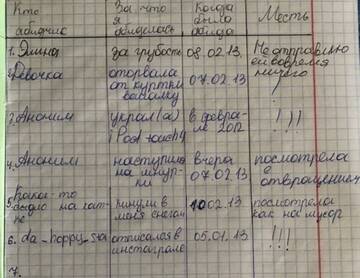 Кто обидчик | За что я обиделась | Когда была обида | Месть
1. Элина | за грубость | 08.02.13 | Не отправлю ей вовремя ничего
2. Девочка | оторвала от куртки | 07.02.13
3. Аноним | украл(а) iPod touch | в феврале 2012 | !!!
4. Аноним | наступил на | вчера 07.02.13 | посмотрела с отвращением
5. Какое-то быдло на катке | кинули в меня снегом | 10.02.13 | посмотрела как на мусор
6. da_happy_sta | отписался в инстаграме | 05.01.13 | !!!
7.